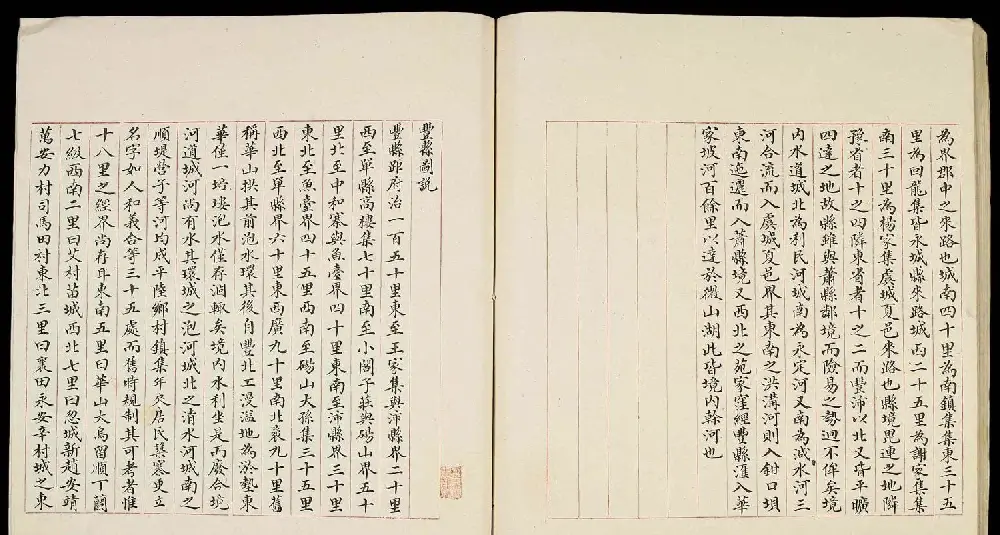 為界鄰中之來路也城南四十里為南鎮集集東三十五
里為回龍集皆永城縣來路城西二十五里為謝家集集
南三十里為楊家集虞城夏邑來路也縣境毘連之地隣
豫省者十之四隣東省者十之二而豐沛以北又皆平曠
四達之地故縣雖與蕭縣鄰境而險易之勢迥不侔矣境
内水道城北為利民河城南為永定河又南為減水河三
河合流而入虞城夏邑界其東南之洪溝河則入鉗口垻
東南迤邐而入蕭縣境又西北之苑家窪經豐縣滙入華
家坡河百餘里以達於微山湖此皆境内幹河也
豐縣圖説
豐縣距府治一百五十里東至王家集與沛縣界二十里
西至單縣高樓集七十里南至小閻子莊與碭山界五十
里北至中和寨與魚臺界四十里東南至沛縣界三十里
東北至魚臺界四十五里西南至碭山大孫集三十五里
西北至單縣界六十里東西廣九十里南北袤九十里舊
稱華山拱其前泡水環其後自豐北工漫溢地為淤墊東
華僅一培塿泡水僅存涸轍矣境内水利坐是而廢合境
河道城河尚有水其環城之泡河城北之清水河城南之
順堤營子等河均成平陸鄉村鎮集年久居民築寨更立
名字如人和義合等三十五處而舊時規制其可考者惟
十八里之經界尚存耳東南五里曰華山大烏留順丁蘭
七級西南二里曰艾村苗城西北七里曰忽城新趙安靖
萬安力村司馬田村東北三里曰裏田永安辛村城之東